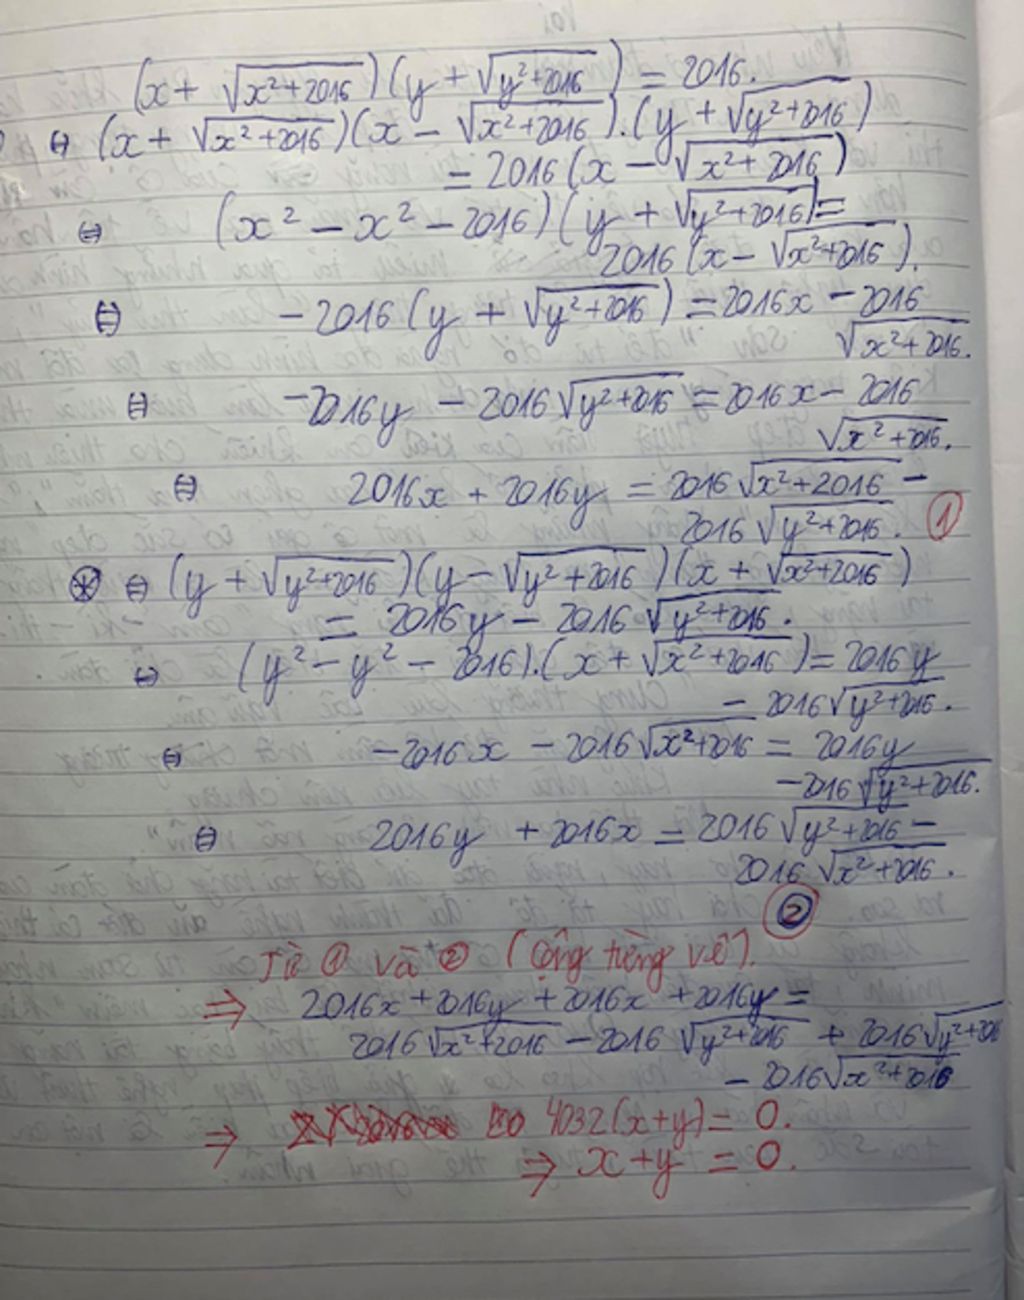 (x + √(x²+2016))(y + √(y²+2016)) = 2016.
⇔ (x + √(x²+2016))(x − √(x²+2016)).(y + √(y²+2016))
= 2016(x − √(x²+2016))
⇔ (x² − x² − 2016)(y + √(y²+2016)) =
2016(x − √(x²+2016)).
⇔ −2016(y + √(y²+2016)) = 2016x − 2016
√(x²+2016).
⇔ −2016y − 2016√(y²+2016) = 2016x − 2016
√(x²+2016).
⇔ 2016x + 2016y = 2016√(x²+2016) −
2016√(y²+2016). ①
⊛ ⇔ (y + √(y²+2016))(y − √(y²+2016))(x + √(x²+2016))
= 2016y − 2016√(y²+2016).
⇔ (y² − y² − 2016).(x + √(x²+2016)) = 2016y
− 2016√(y²+2016).
⇔ −2016x − 2016√(x²+2016) = 2016y
−2016√(y²+2016).
⇔ 2016y + 2016x = 2016√(y²+2016) −
2016√(x²+2016).
②
Từ ① và ② (Cộng từng vế).
⇒ 2016x + 2016y + 2016x + 2016y =
2016√(x²+2016) − 2016√(y²+2016) + 2016√(y²+2016)
− 2016√(x²+2016)
⇒ 4032(x+y) = 0.
⇒ x + y = 0.